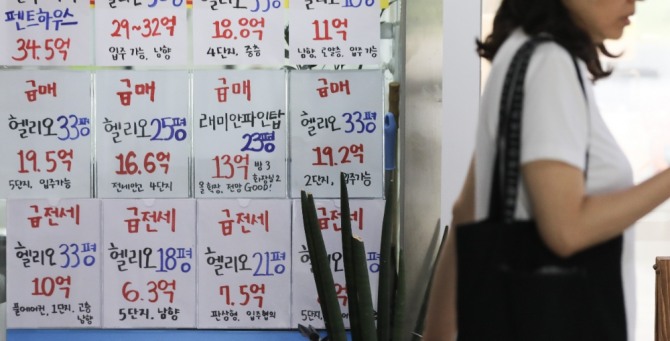 펜트하우스
34.5억
29~32억
입주 가능, 남향
18.8억
4단지, 중층
11억
급매
헬리오 33평
19.5억
5단지, 입주가능
급매
헬리오 25평
16.6억
전세안고 4단지
급매
래미안파인탑
23평
13억
방3
화장실2
올확장, 전망 GOOD!
급매
헬리오 33평
19.2억
2단지, 입주가능
급전세
헬리오 33평
10억
풀에어컨, 1단지, 고층
남향
급전세
헬리오 18평
6.3억
5단지, 남향
급전세
헬리오 21평
7.5억
판상형, 입주협의
급전세
헬리오
5단지